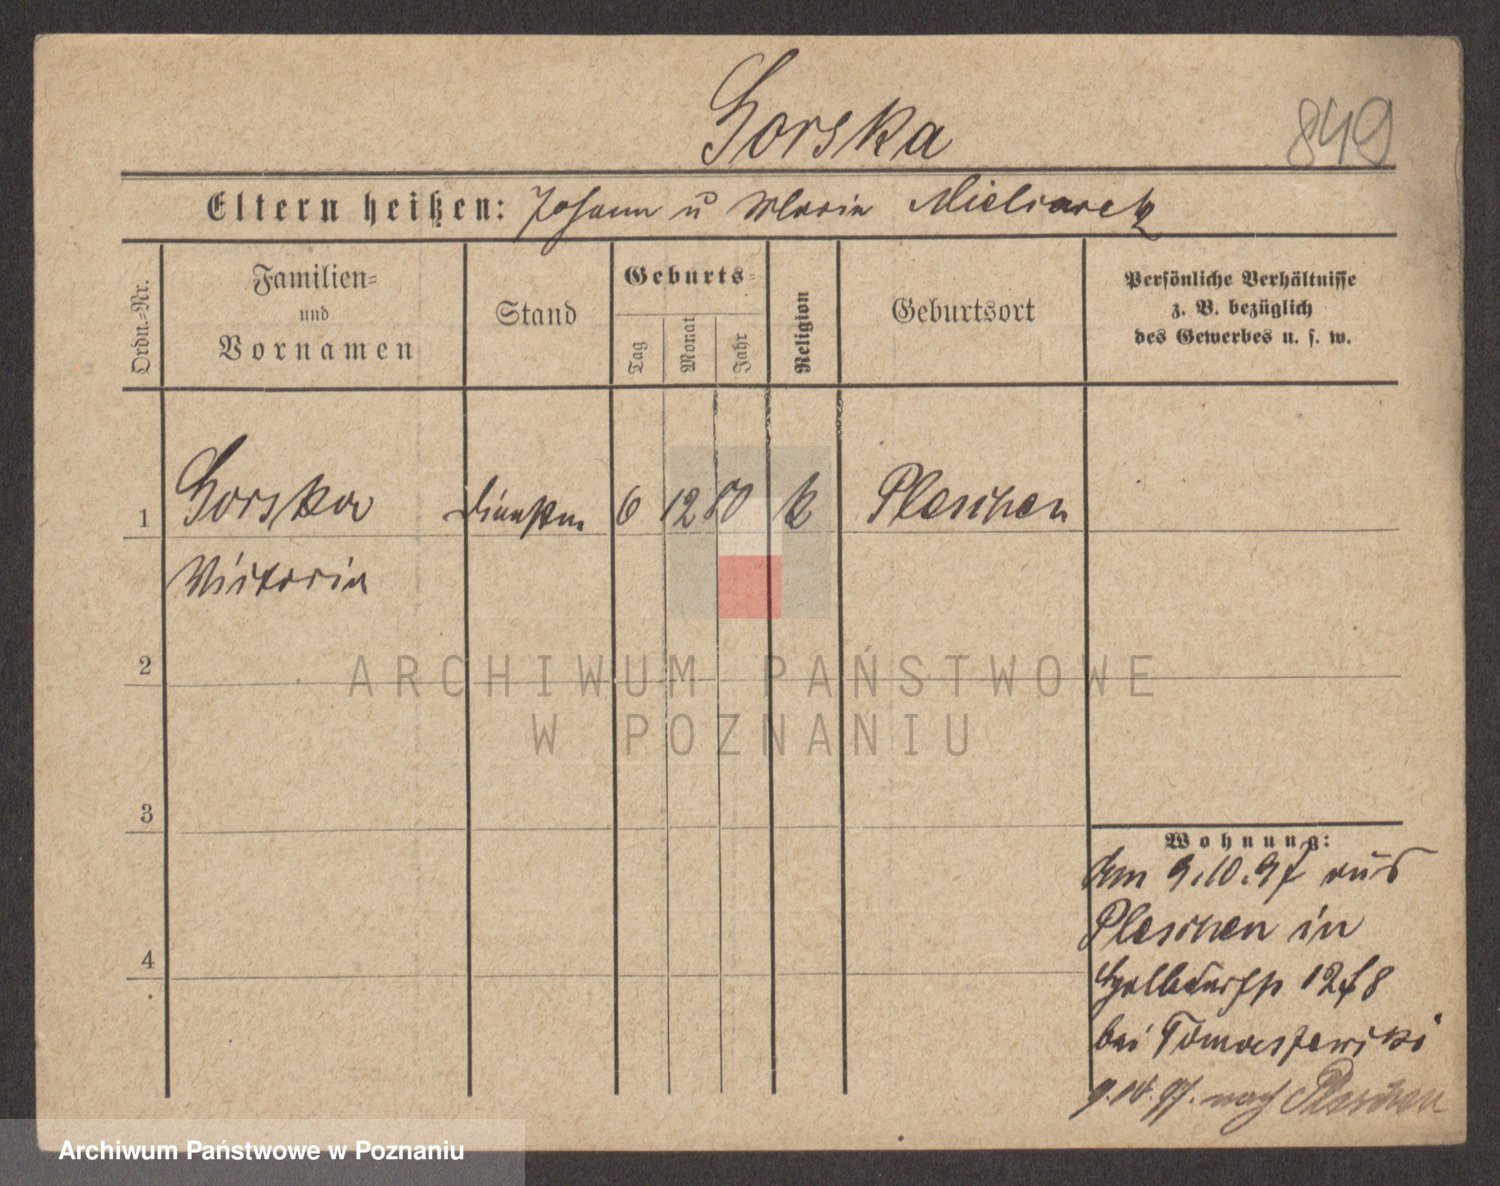 Gorska
849
Eltern heißen: Johann u Maria Mielcarek
Ordn.-Nr.
Familien-
und
Vornamen
Stand
Geburts-
Tag
Monat
Jahr
Religion
Geburtsort
Persönliche Verhältnisse
z. B. bezüglich
des Gewerbes u. s. w.
1 Gorska 6 12 80 k Pleschen
Victoria
2
ARCHIWUM PAŃSTWOWE
W POZNANIU
3
Wohnung:
Am 9.10.97 aus
Pleschen in
bei Tomaszewski
nach Pleschen
4
Archiwum Państwowe w Poznaniu